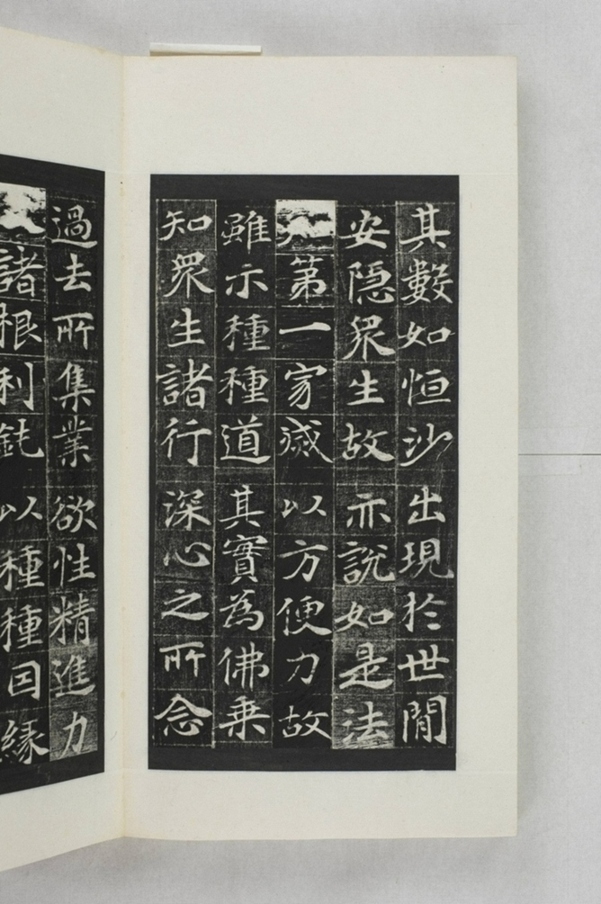 其數如恒沙出現於世閒
安隱眾生故亦說如是法
第一寂滅以方便力故
雖示種種道其實為佛乗
知眾生諸行深心之所念
過去所集業欲性精進力
諸根利鈍以種種因緣